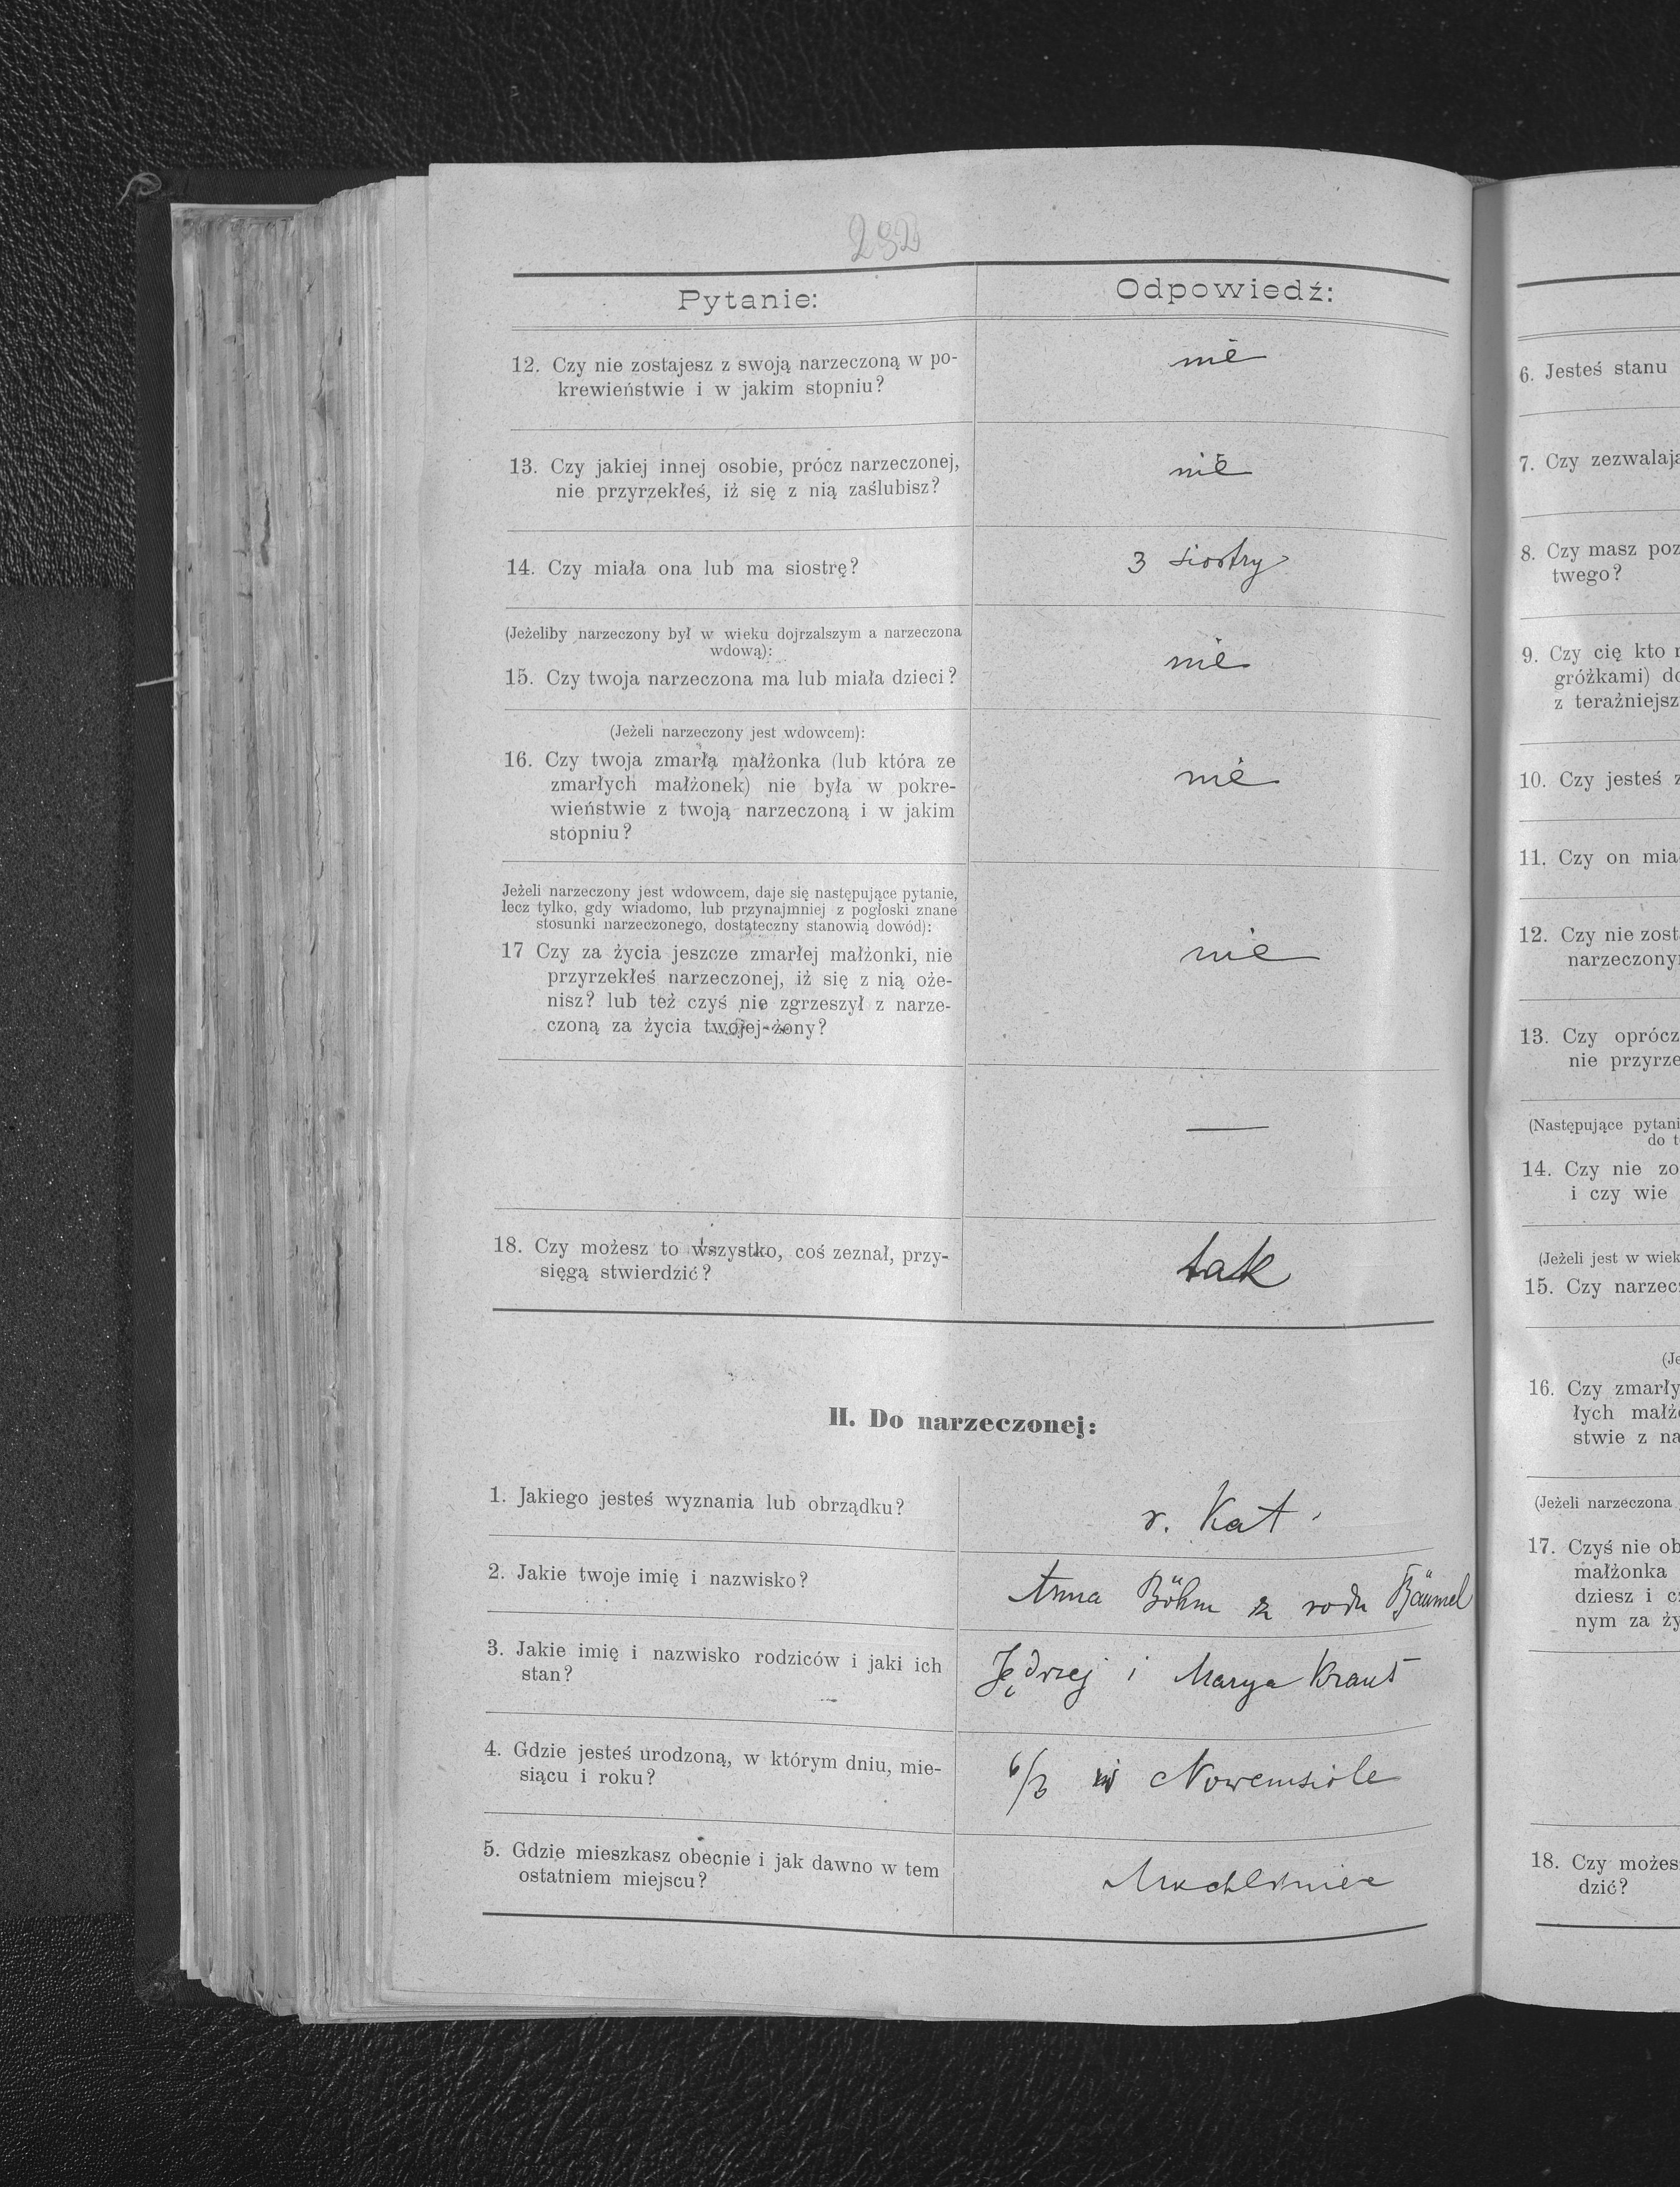 232
Pytanie:
Odpowiedź:
12. Czy nie zostajesz z swoją narzeczoną w po-
krewieństwie i w jakim stopniu?
nie
13. Czy jakiej innej osobie, prócz narzeczonej,
nie przyrzekłeś, iż się z nią zaślubisz?
nie
14. Czy miała ona lub ma siostrę?
3 siostry
(Jeżeliby narzeczony był w wieku dojrzalszym a narzeczona
wdową):
15. Czy twoja narzeczona ma lub miała dzieci?
nie
(Jeżeli narzeczony jest wdowcem):
16. Czy twoja zmarłą małżonka (lub która ze
zmarłych małżonek) nie była w pokre-
wieństwie z twoją narzeczoną i w jakim
stopniu?
nie
Jeżeli narzeczony jest wdowcem, daje się następujące pytanie,
lecz tylko, gdy wiadomo, lub przynajmniej z pogłoski znane
stosunki narzeczonego, dostąteczny stanowią dowód):
17 Czy za życia jeszcze zmarłej małżonki, nie
przyrzekłeś narzeczonej, iż się z nią oże-
nisz? lub też czyś nie zgrzeszył z narze-
czoną za życia twojej żony?
nie
—
18. Czy możesz to wszystko, coś zeznał, przy-
sięgą stwierdzić?
tak
II. Do narzeczonej:
1. Jakiego jesteś wyznania lub obrządku?
r. Kat
2. Jakie twoje imię i nazwisko?
Anna Böhm z rodu Bäumel
3. Jakie imię i nazwisko rodziców i jaki ich
stan?
Jędrzej i Marya Kraus
4. Gdzie jesteś urodzoną, w którym dniu, mie-
siącu i roku?
w Nowemsiole
5. Gdzie mieszkasz obecnie i jak dawno w tem
ostatniem miejscu?
6. Jesteś stanu
7. Czy zezwalają
8. Czy masz poz
twego?
9. Czy cię kto
gróżkami) do
z teraźniejsz
10. Czy jesteś z
11. Czy on mia
12. Czy nie zost
narzeczony
13. Czy oprócz
nie przyrze
(Następujące pytani
do t
14. Czy nie zo
i czy wie
(Jeżeli jest w wiek
15. Czy narzec
(Je
16. Czy zmarły
łych małż
stwie z na
(Jeżeli narzeczona
17. Czyś nie ob
małżonka
dziesz i c
nym za ży
18. Czy możes
dzić?